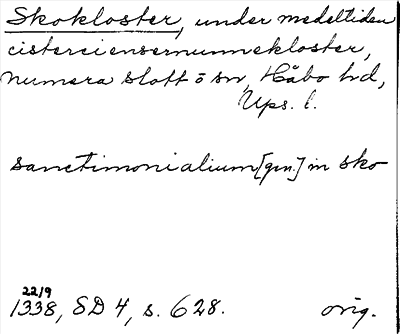 Skokloster, under medeltiden
cisterciensernunnekloster,
numera slott o sn, Håbo hd,
Ups. l.
sanctimonialium [gm.] in sko
22/9
1338, SD 4, s. 628. orig.